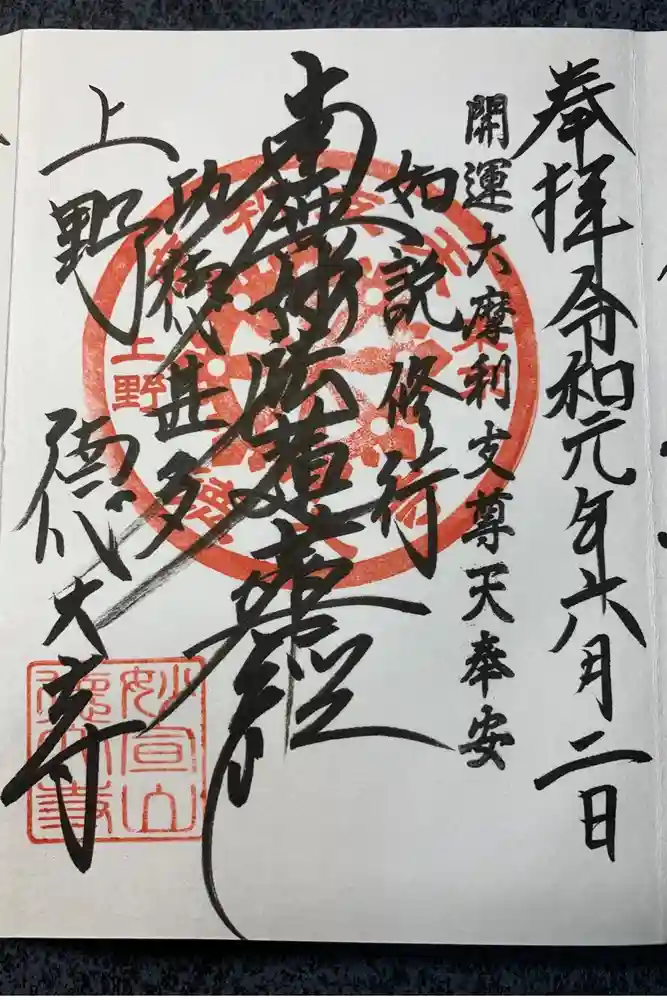 奉拝令和元年六月二日
開運大摩利支尊天奉安
如説修行
南無妙法蓮華経
功徳甚多
上野
徳大寺
上野
妙宣山
徳大寺